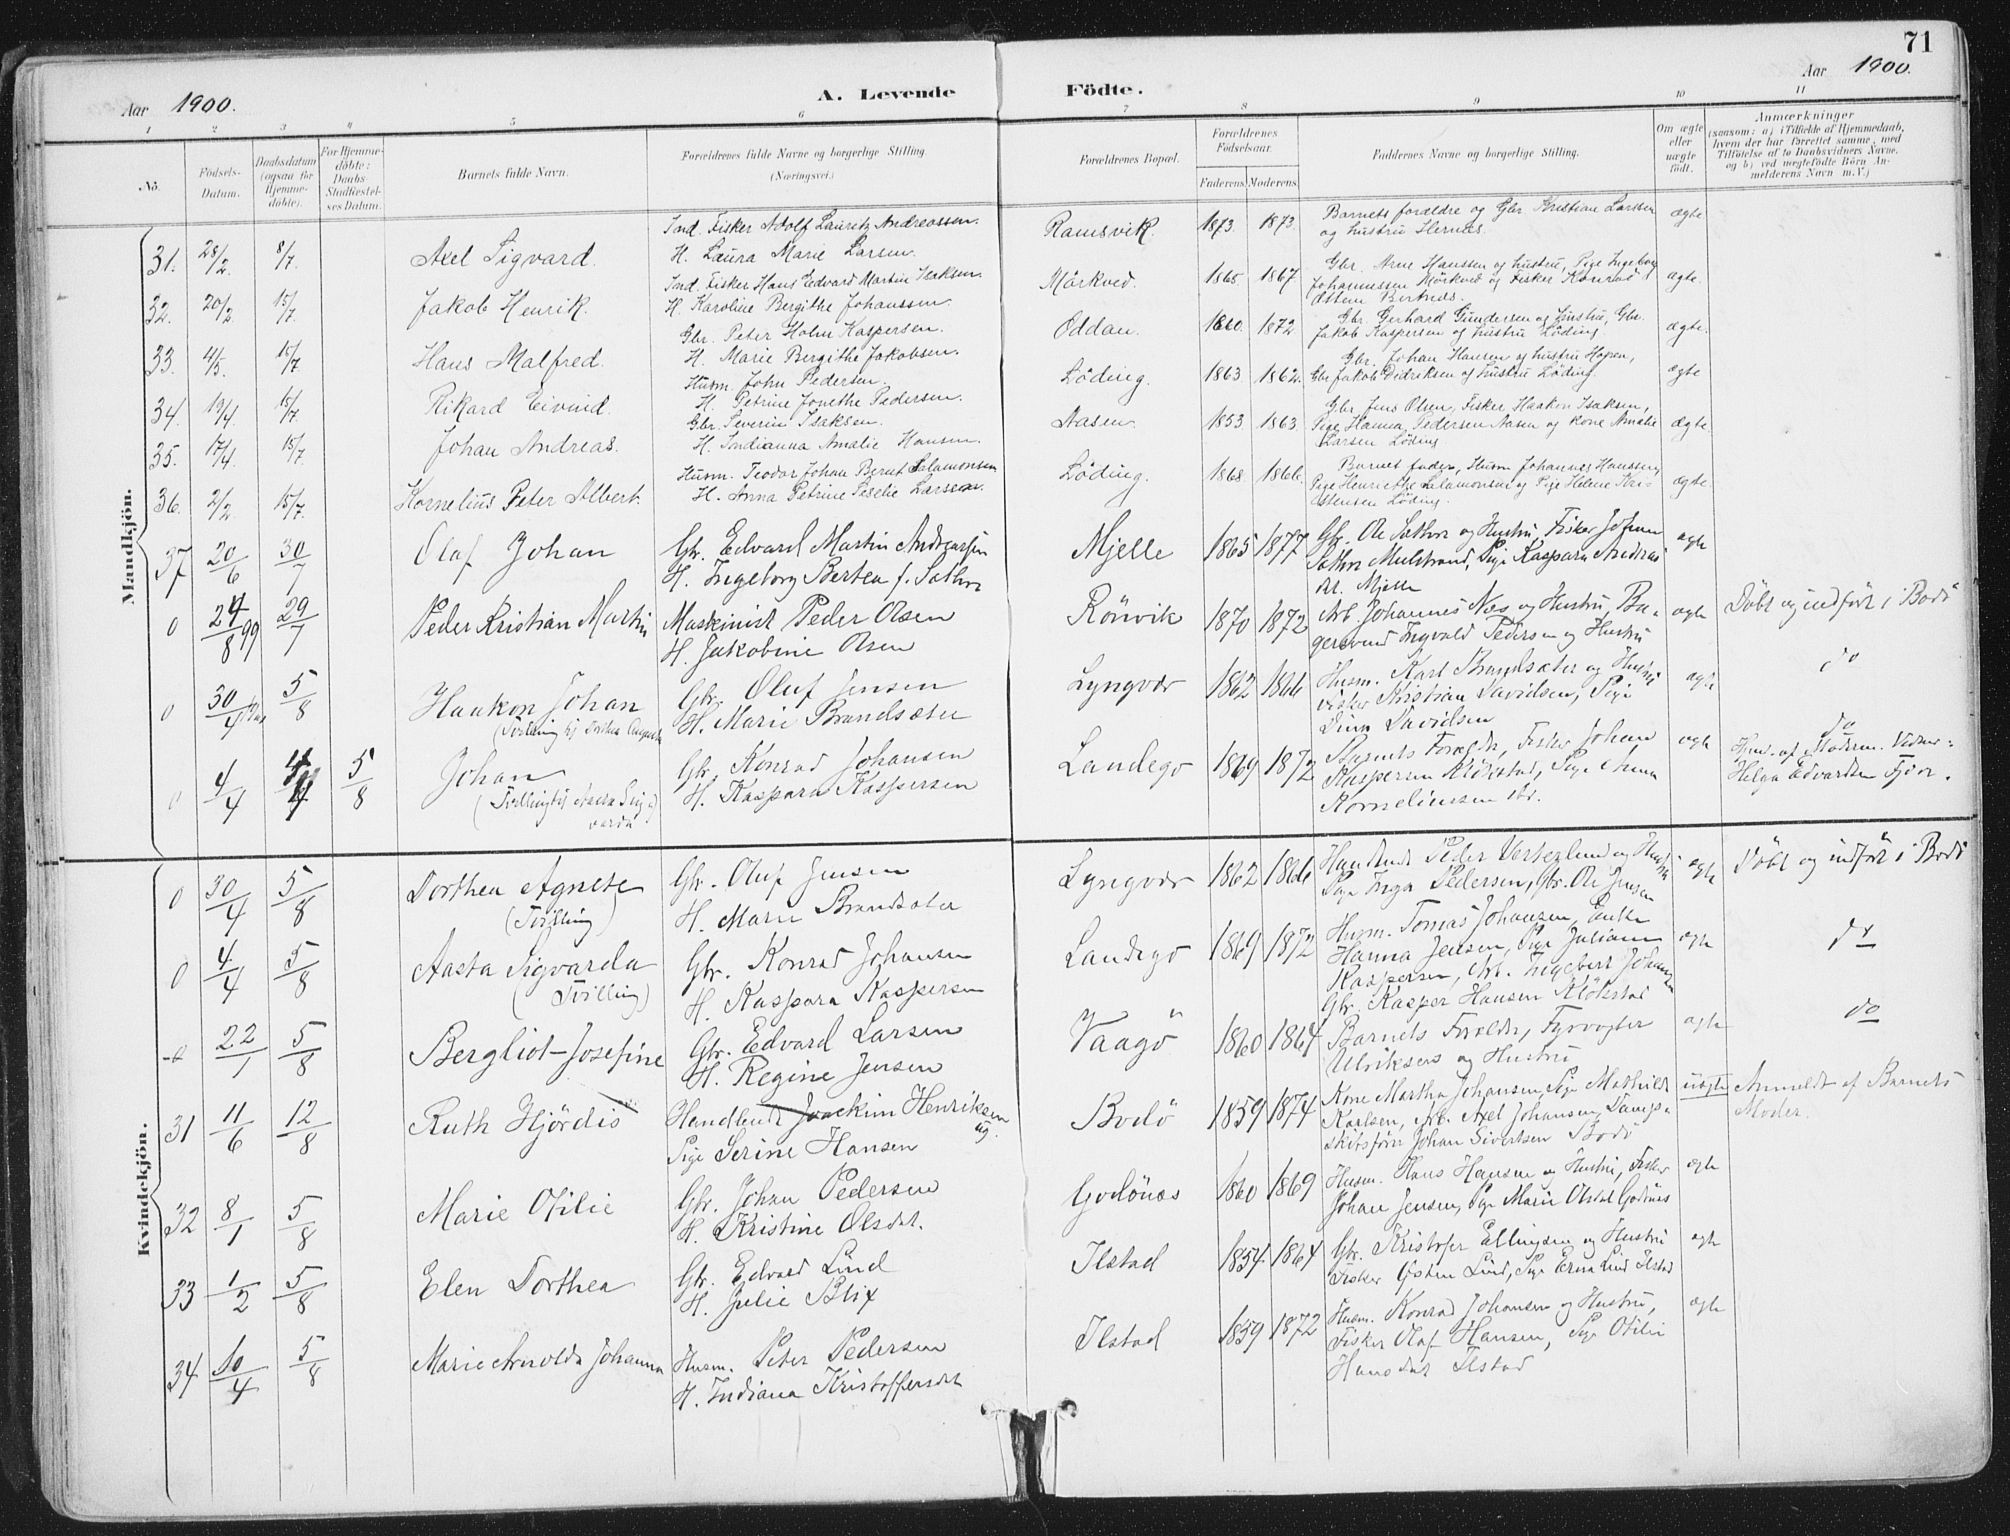 71
Aar 1900.
A. Levende
Födte.
Aar 1900.
1 2 3 4 5 6 7 8 9 10 11
No.
Födsels-
Datum.
Daabsdatum
(ogsaa for
Hjemme-
döbte).
For Hjemme-
döbte:
Daabs-
Stadfæstel-
ses Datum.
Barnets fulde Navn.
Forældrenes fulde Navne og borgerlige Stilling.
(Næringsvei.)
Forældrenes Bopæl.
Forældrenes
Födselsaar.
Faderens. Moderens.
Faddernes Navne og borgerlige Stilling.
Om ægte
eller
uægte
födt.
Anmærkninger
(saasom: a) i Tilfælde af Hjemmedaab,
hvem der har forrettet samme, med
Tilföielse af to Daabsvidners Navne,
og b) ved uægtefödte Börn An-
melderens Navn m. V.)
Mandkjön.
31. 28/2 8/7 Axel Sigvard.
Ind. Fisker Adolf Lauritz Andreassen.
H. Laura Marie Larsen.
Ramsvik. 1873. 1873.
Barnets forældre og Gbr. Kristian Larssen
og hustru Hernes.
ægte
32. 20/2 15/7 Jakob Henrik.
Ind. Fisker Hans Edvard Martin Isaksen.
H. Karoline Bergithe Johanssen.
Mörkved. 1865 1867.
Gbr. Arne Hanssen og hustru, Pige Ingeborg
Johannessen Mörkved og Fisker Konrad
Bertnes.
ægte.
33. 4/5. 15/7 Hans Malfred.
Gbr. Peter Holm Kaspersen.
H. Marie Bergithe Jakobsen.
Oddan. 1860. 1872
Gbr. Gerhard Gundersen og hustru, Gbr.
Jakob Kaspersen og hustru Löding
ægte.
34. 19/4 15/7 Rikard Eivind.
Husm. John Pedersen.
H. Petrine Jonethe Pedersen.
Löding. 1863. 1862.
Gbr. Johan Hansen og hustru Hopen,
Gbr Jakob Didriksen og hustru Löding.
ægte
35. 17/4. 15/7. Johan Andreas.
Gbr. Severin Isaksen.
H. Indianna Amalie Hansen.
Aasen. 1853 1863.
Gbr. Jens Olsen, Fisker Haakon Isaksen,
Pige Hanna Pedersen Aasen og kone Amalie
Larsen Löding
ægte.
36. 2/2. 15/7. Kornelius Peter Albert.
Husm. Teodor Johan Bernt Salamonsen
H. Anna Petrine Larsen.
Löding. 1868. 1866.
Barnets fader, Husm Johannes Hanssen,
Pige Henriette Salamonsen og Pige Helene
Löding.
ægte.
37 20/6 30/7 Olaf Johan
Gbr. Edvard Martin Andreassen
H. Ingeborg Bertea
Mjelle 1865 1877
Gbr. Ole og Hustru, Fisker Johan
Pige Kaspara
Mjelle
ægte
0 24/8 99 29/7 Peder Kristian Martin
Maskinist Peder Olsen
H. Jakobine Olsen
Rönvik 1870 1872
Arb. Johannes Næs og Hustru, Ba-
gersvend Ingvald Pedersen og Hustru
ægte Döbt og indfört i Bodö
0 30/4 5/8 Haakon Johan
(Tvilling
Gbr. Oluf Jensen
H. Marie Brandsæter
Lyngvær 1862 1866
Husm. Karl Brandsæter og Hustru
Fisker Kristian Davidsen, Pige
Davidsen
ægte do
0 4/4 5/8 Johan
(Tvilling
Gbr. Konrad Johansen
H. Kaspara Kaspersen
Landegö 1869 1872
Barnets Forældre, Fisker Johan
Kaspersen Klökstad, Pige Anna
Korneliussen
ægte do
Hjm. af Moderen. Vidner:
Helga Edvardsen
Kvindekjön.
0 30/4 5/8 Dorthea Agnete
(Tvilling)
Gbr. Oluf Jensen
H. Marie Brandsæter
Lyngvær 1862 1866
Handlende Peder Vesterlund og Hustru
Pige Inga Pedersen, Gbr. Ole Jensen
ægte Döbt og indfört i Bodö
0 4/4 5/8 Aasta Sigvarda
(Tvilling)
Gbr. Konrad Johansen
H. Kaspara Kaspersen
Landegö 1869 1872
Husm. Tomas Johansen, Enke
Hanna Jensen, Pige Juliane
Kaspersen, Arb. Ingebert Johansen
Gbr. Kasper Hansen Klökstad
ægte do
0 22/1 5/8 Bergliot Josefine
Gbr. Edvard Larsen
H. Regine Jensen
Vaagö 1860 1864
Barnets Forældre, Fyrvogter
Ulriksens og Hustru
ægte do
31 11/6 12/8 Ruth Hjördis
Handlende Joackim Henriksen
ug.
Pige Serine Hansen
Bodö 1859 1874
Kone Martha Johansen, Pige Mathilde
Karlsen, Arb. Axel Johansen, Damp-
skibsförer Johan Sivertsen Bodö
uægte Anmeldt af Barnets
Moder.
32 8/1 5/8 Marie Otilie
Gbr. Johan Pedersen
H. Kristine Olsdt.
Godönes 1860 1869
Husm. Hans Hansen og Hustru, Fisker
Johan Jensen, Pige Marie Olsdt Godönes
ægte
33 1/2 5/8 Elen Dorthea
Gbr. Edvard Lind
H. Julie Blix
Ilstad 1854 1864
Gbr. Kristofer Ellingsen og Hustru
Fisker Östen Lind, Pige Erna Lind Ilstad
ægte
34 10/4 5/8 Marie Arnolda Johanna
Husm. Peter Pedersen
H. Indiana Kristoffersdt
Ilstad 1859 1872
Husm. Konrad Johansen og Hustru,
Fisker Olaf Hansen, Pige Otilie
Hansdat Ilstad
ægte